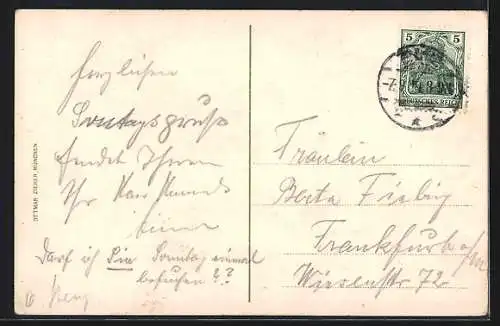 Herzlichen
Sonntagsgruß
sendet Ihnen
Ihr
Darf ich Sie Sonntag einmal
besuchen??
OTTMAR ZIEHER, MÜNCHEN
5 5
DEUTSCHES REICH
Fräulein
Berta Fiebig
Frankfurt a/M
Wiesenstr 72